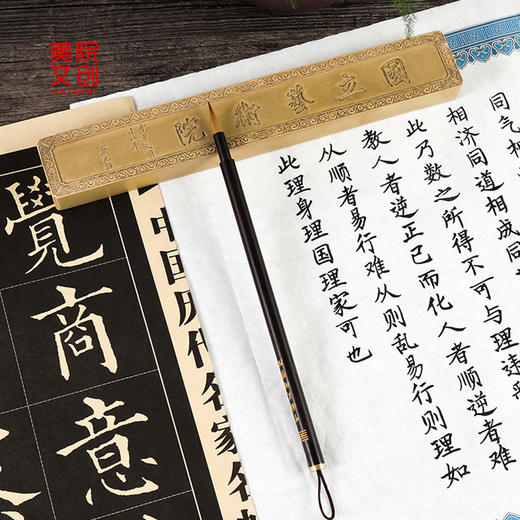 美院
文创
國立藝術院
同气
相济同道相成同
此乃数之所得不可与理违
教人者逆正己而化人者顺逆者难
从顺者易行难从则乱易行则理如
此理身理国理家可也
中国历代名家名
覺商意